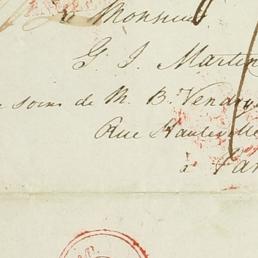 à Monsieur
G. J. Martin
soins de M. B. Vendro
Rue Hauteville
à Par